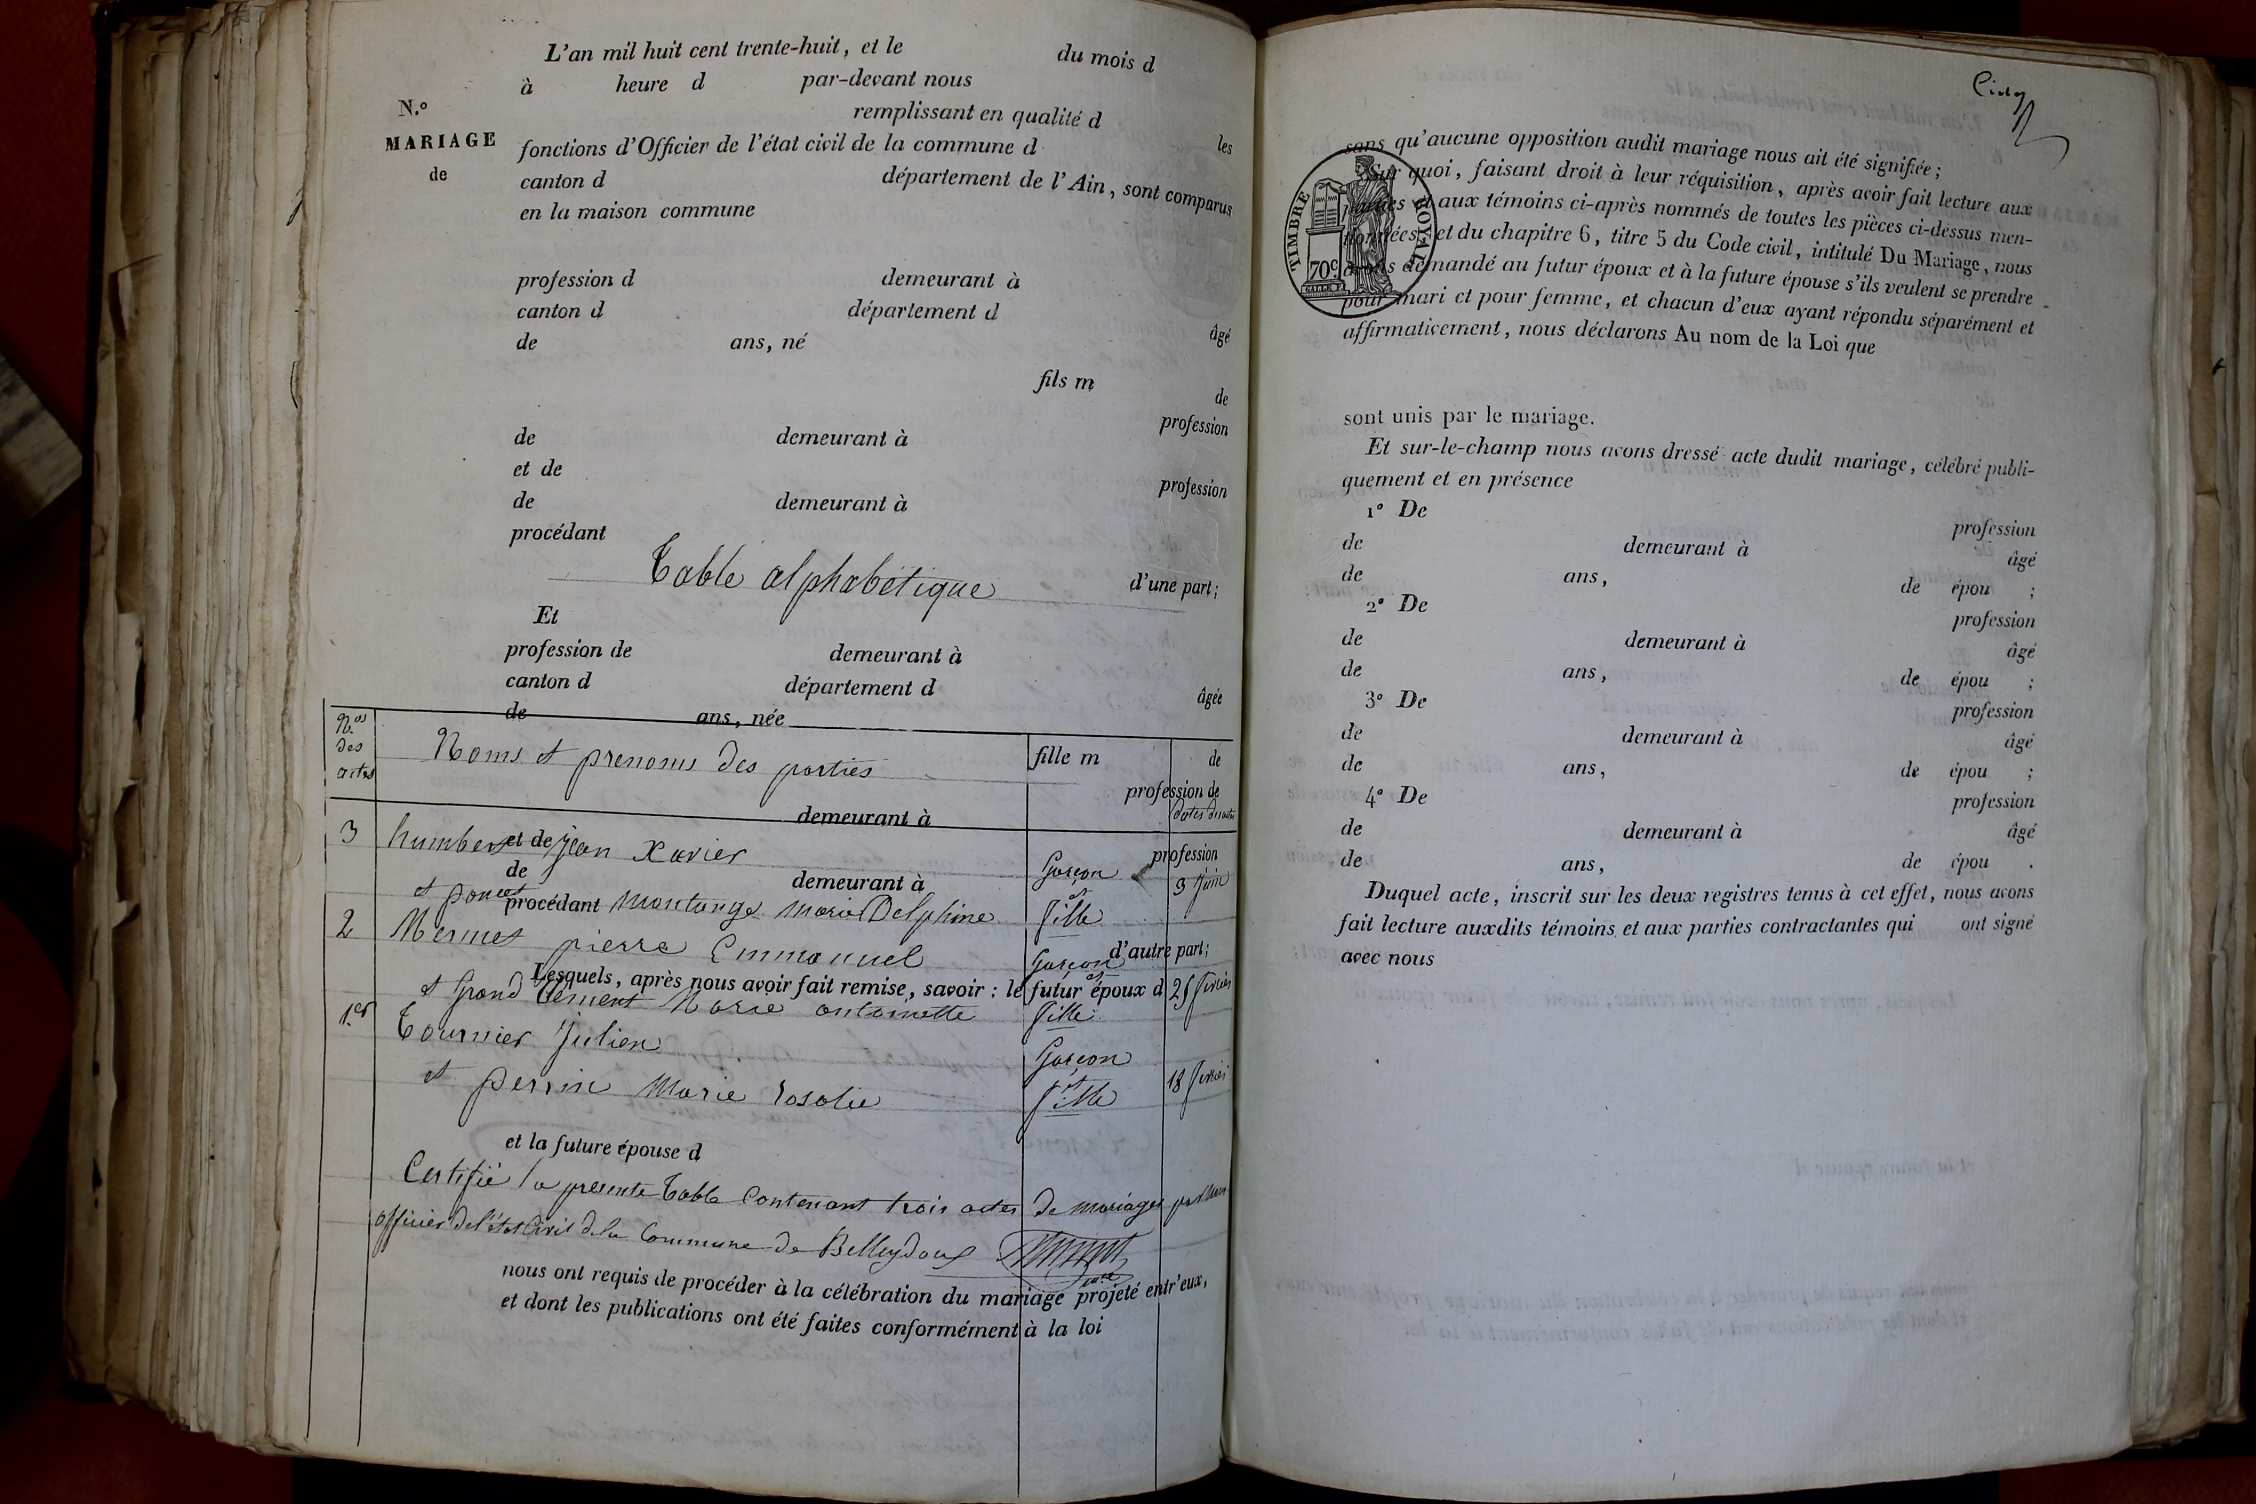 L'an mil huit cent trente-huit, et le du mois d
à heure d par-devant nous
N.° remplissant en qualité d
MARIAGE fonctions d'Officier de l'état civil de la commune d les
de canton d département de l'Ain, sont comparus
en la maison commune
profession d demeurant à
canton d département d
de ans, né âgé
fils m de
profession
de demeurant à
et de profession
de demeurant à
procédant
Table alphabétique d'une part;
Et
profession de demeurant à
canton d département d âgée
de ans, née
N.os des actes
Noms et prenoms des parties fille m de
profession de
demeurant à Dates des actes
3 humbert et de jean Xavier Garçon profession
de demeurant à et 9 Juin
et poncet procédant Montange Marie Delphine fille
2 Mermet pierre Emmanuel Garçon d'autre part;
Lesquels, après nous avoir fait remise, savoir : le futur époux d
et Grand Clément Marie antoinette fille 25 fevrier
1.er Tournier Julien Garçon
et perrin Marie rosalie et fille 18 fevrier
et la future épouse d
Certifié la presente Table Contenant trois actes de mariages par Nous
officier de l'état Civil de la Commune de Belleydoux
nous ont requis de procéder à la célébration du mariage projeté entr'eux,
et dont les publications ont été faites conformément à la loi
sans qu'aucune opposition audit mariage nous ait été signifiée;
Sur quoi, faisant droit à leur réquisition, après avoir fait lecture aux
parties et aux témoins ci-après nommés de toutes les pièces ci-dessus men-
tionnées, et du chapitre 6, titre 5 du Code civil, intitulé Du Mariage, nous
avons demandé au futur époux et à la future épouse s'ils veulent se prendre
pour mari et pour femme, et chacun d'eux ayant répondu séparément et
affirmativement, nous déclarons Au nom de la Loi que
TIMBRE ROYAL
70c.
sont unis par le mariage.
Et sur-le-champ nous avons dressé acte dudit mariage, célébré publi-
quement et en présence
1° De profession
de demeurant à âgé
de ans, de épou ;
2° De profession
de demeurant à âgé
de ans, de épou ;
3° De profession
de demeurant à âgé
de ans, de épou ;
4° De profession
de demeurant à âgé
de ans, de épou .
Duquel acte, inscrit sur les deux registres tenus à cet effet, nous avons
fait lecture auxdits témoins et aux parties contractantes qui ont signé
avec nous